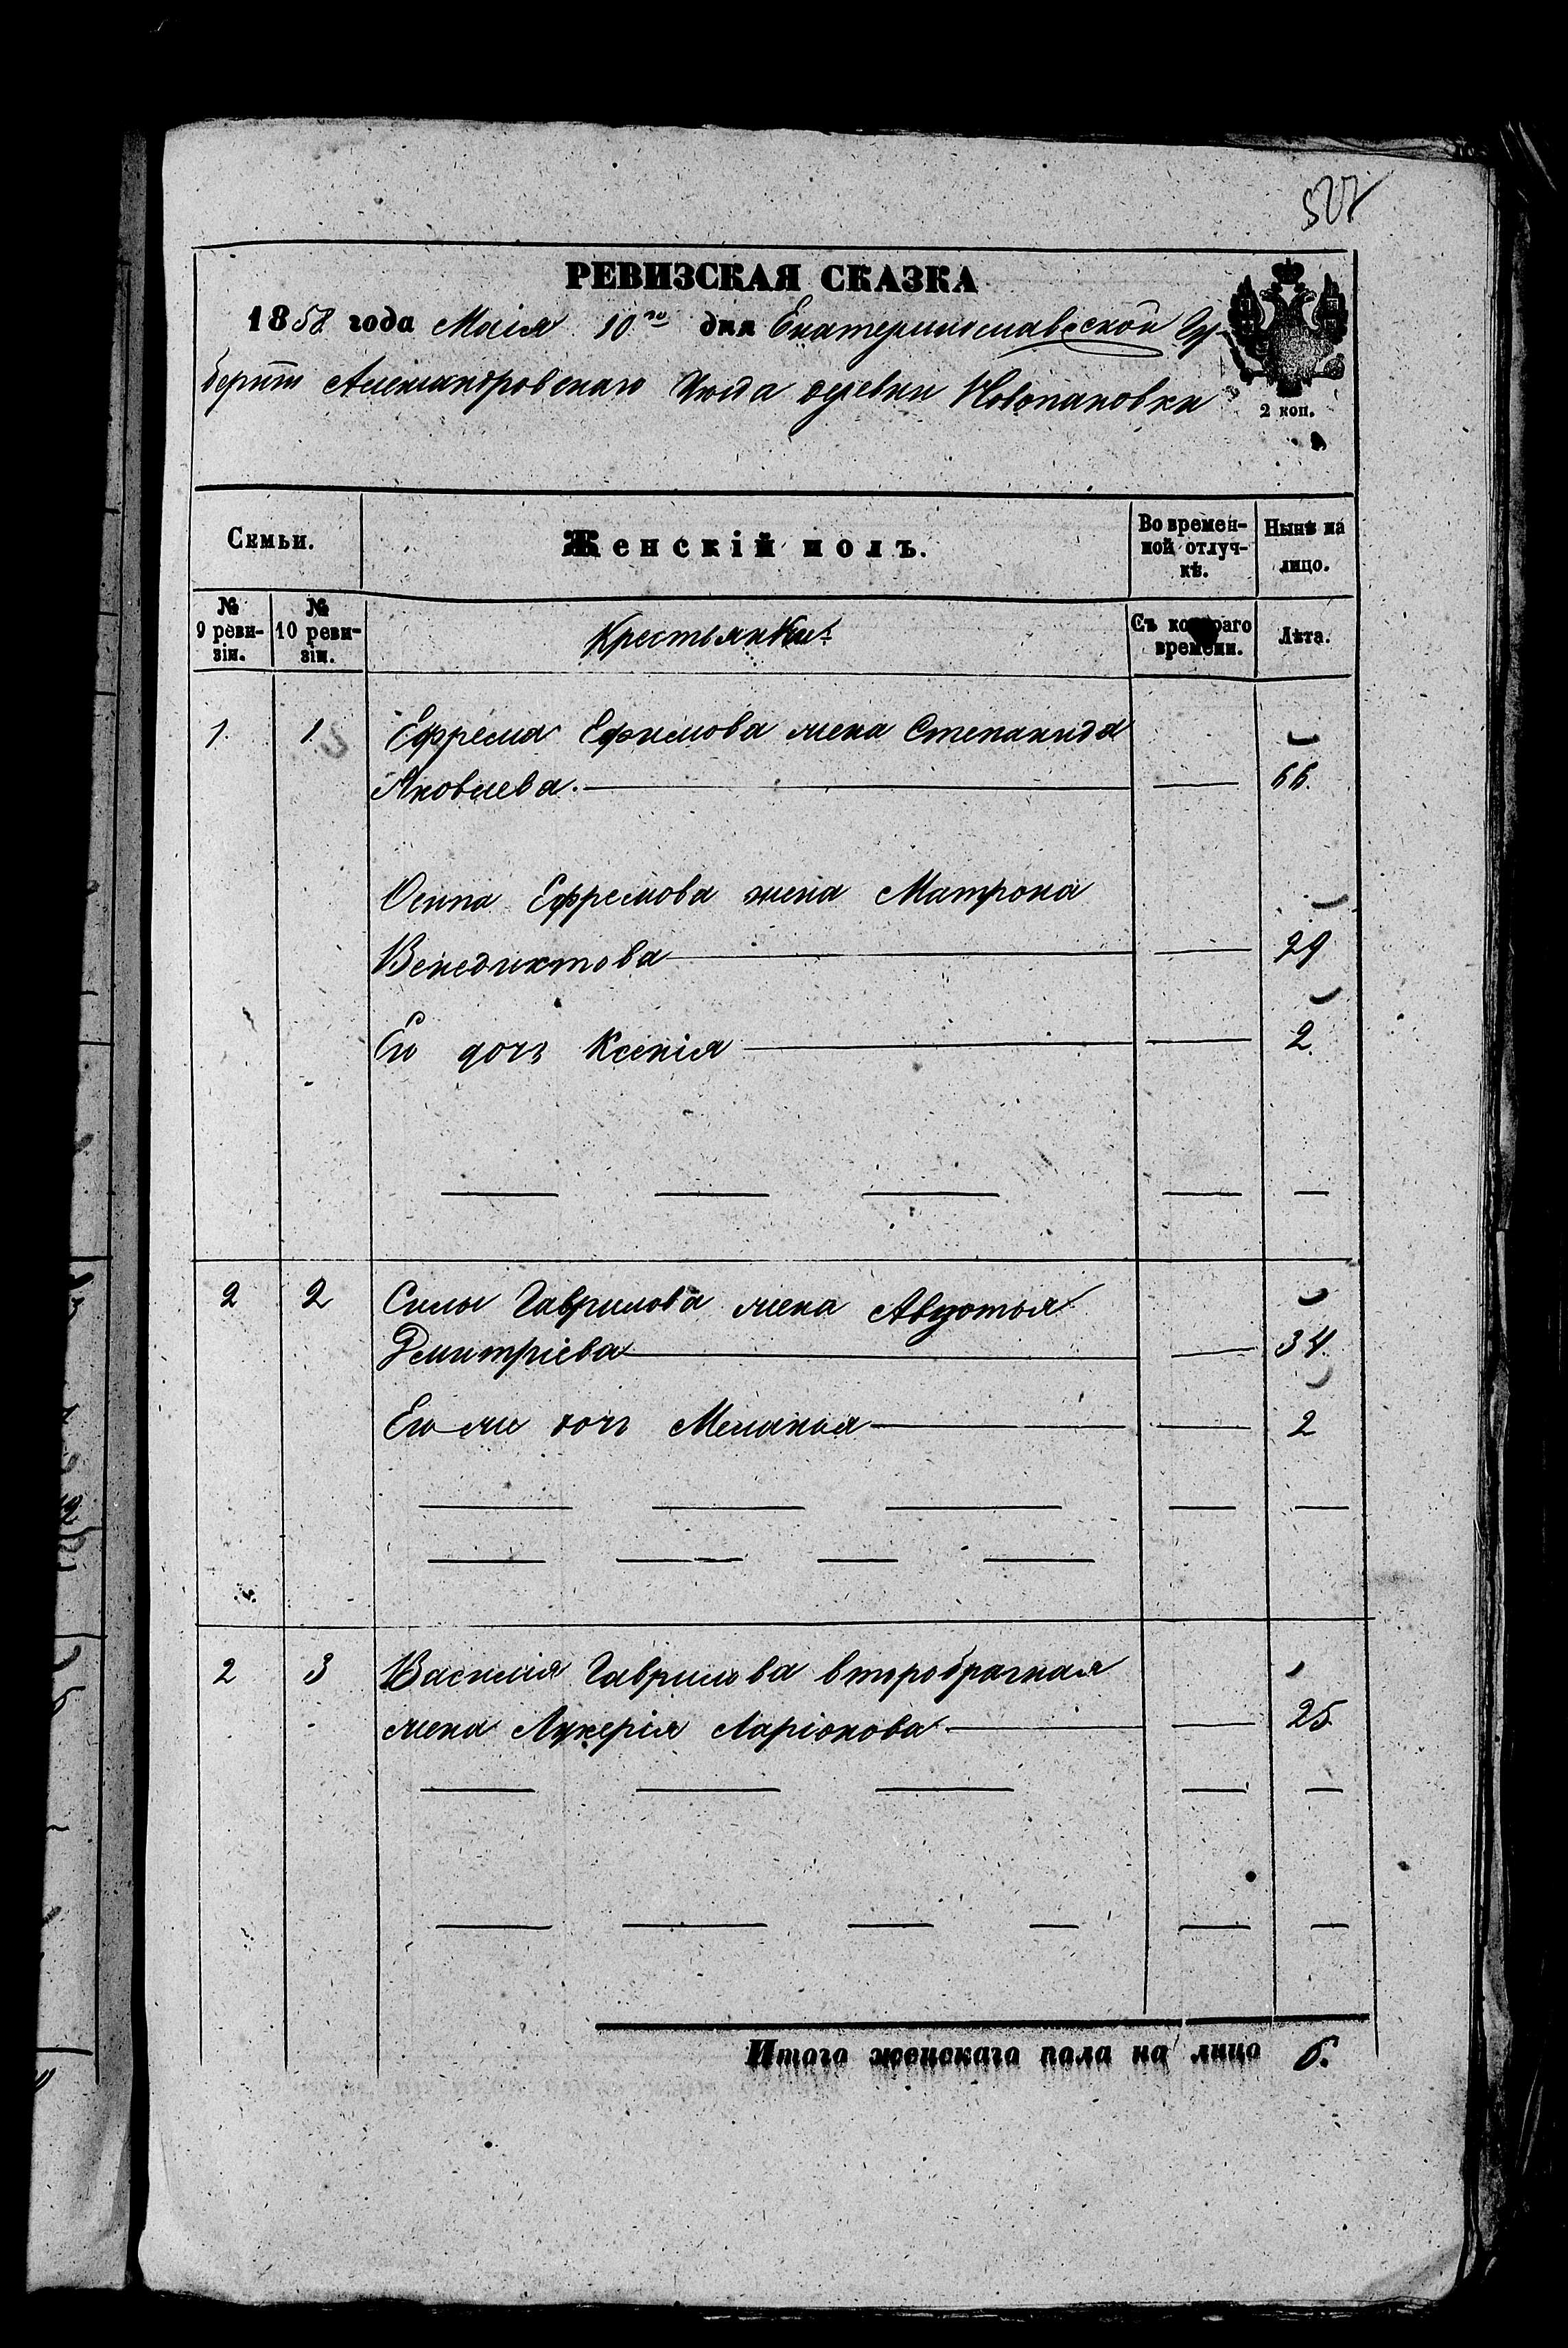 507
РЕВИЗСКАЯ СКАЗКА
1858 года Маія 10го дня Екатеринославской Гу-
берніи Александровскаго Уезда деревни Новопавловки
2 коп.
Семьи. Женскій полъ. Во времен-ной отлуч-кѣ. Нынѣ на лицо.
№ 9 реви-зіи. № 10 реви-зіи. Крестьянки Съ котораго времени. Лѣта.
1. 1. Ефрема Ефимова жена Степанида
Яковлева. 66.
Осипа Ефремова жена Матрона
Венедиктова 29
Ею дочь Ксенія 2.
2 2 Силы Гаврилова жена Авдотья
Дмитріева 34.
Его же дочь Меланья 2
2 3 Василія Гаврилова второбрачная
жена Лукерія Ларіонова 25
Итого женскаго пола на лицо 6.